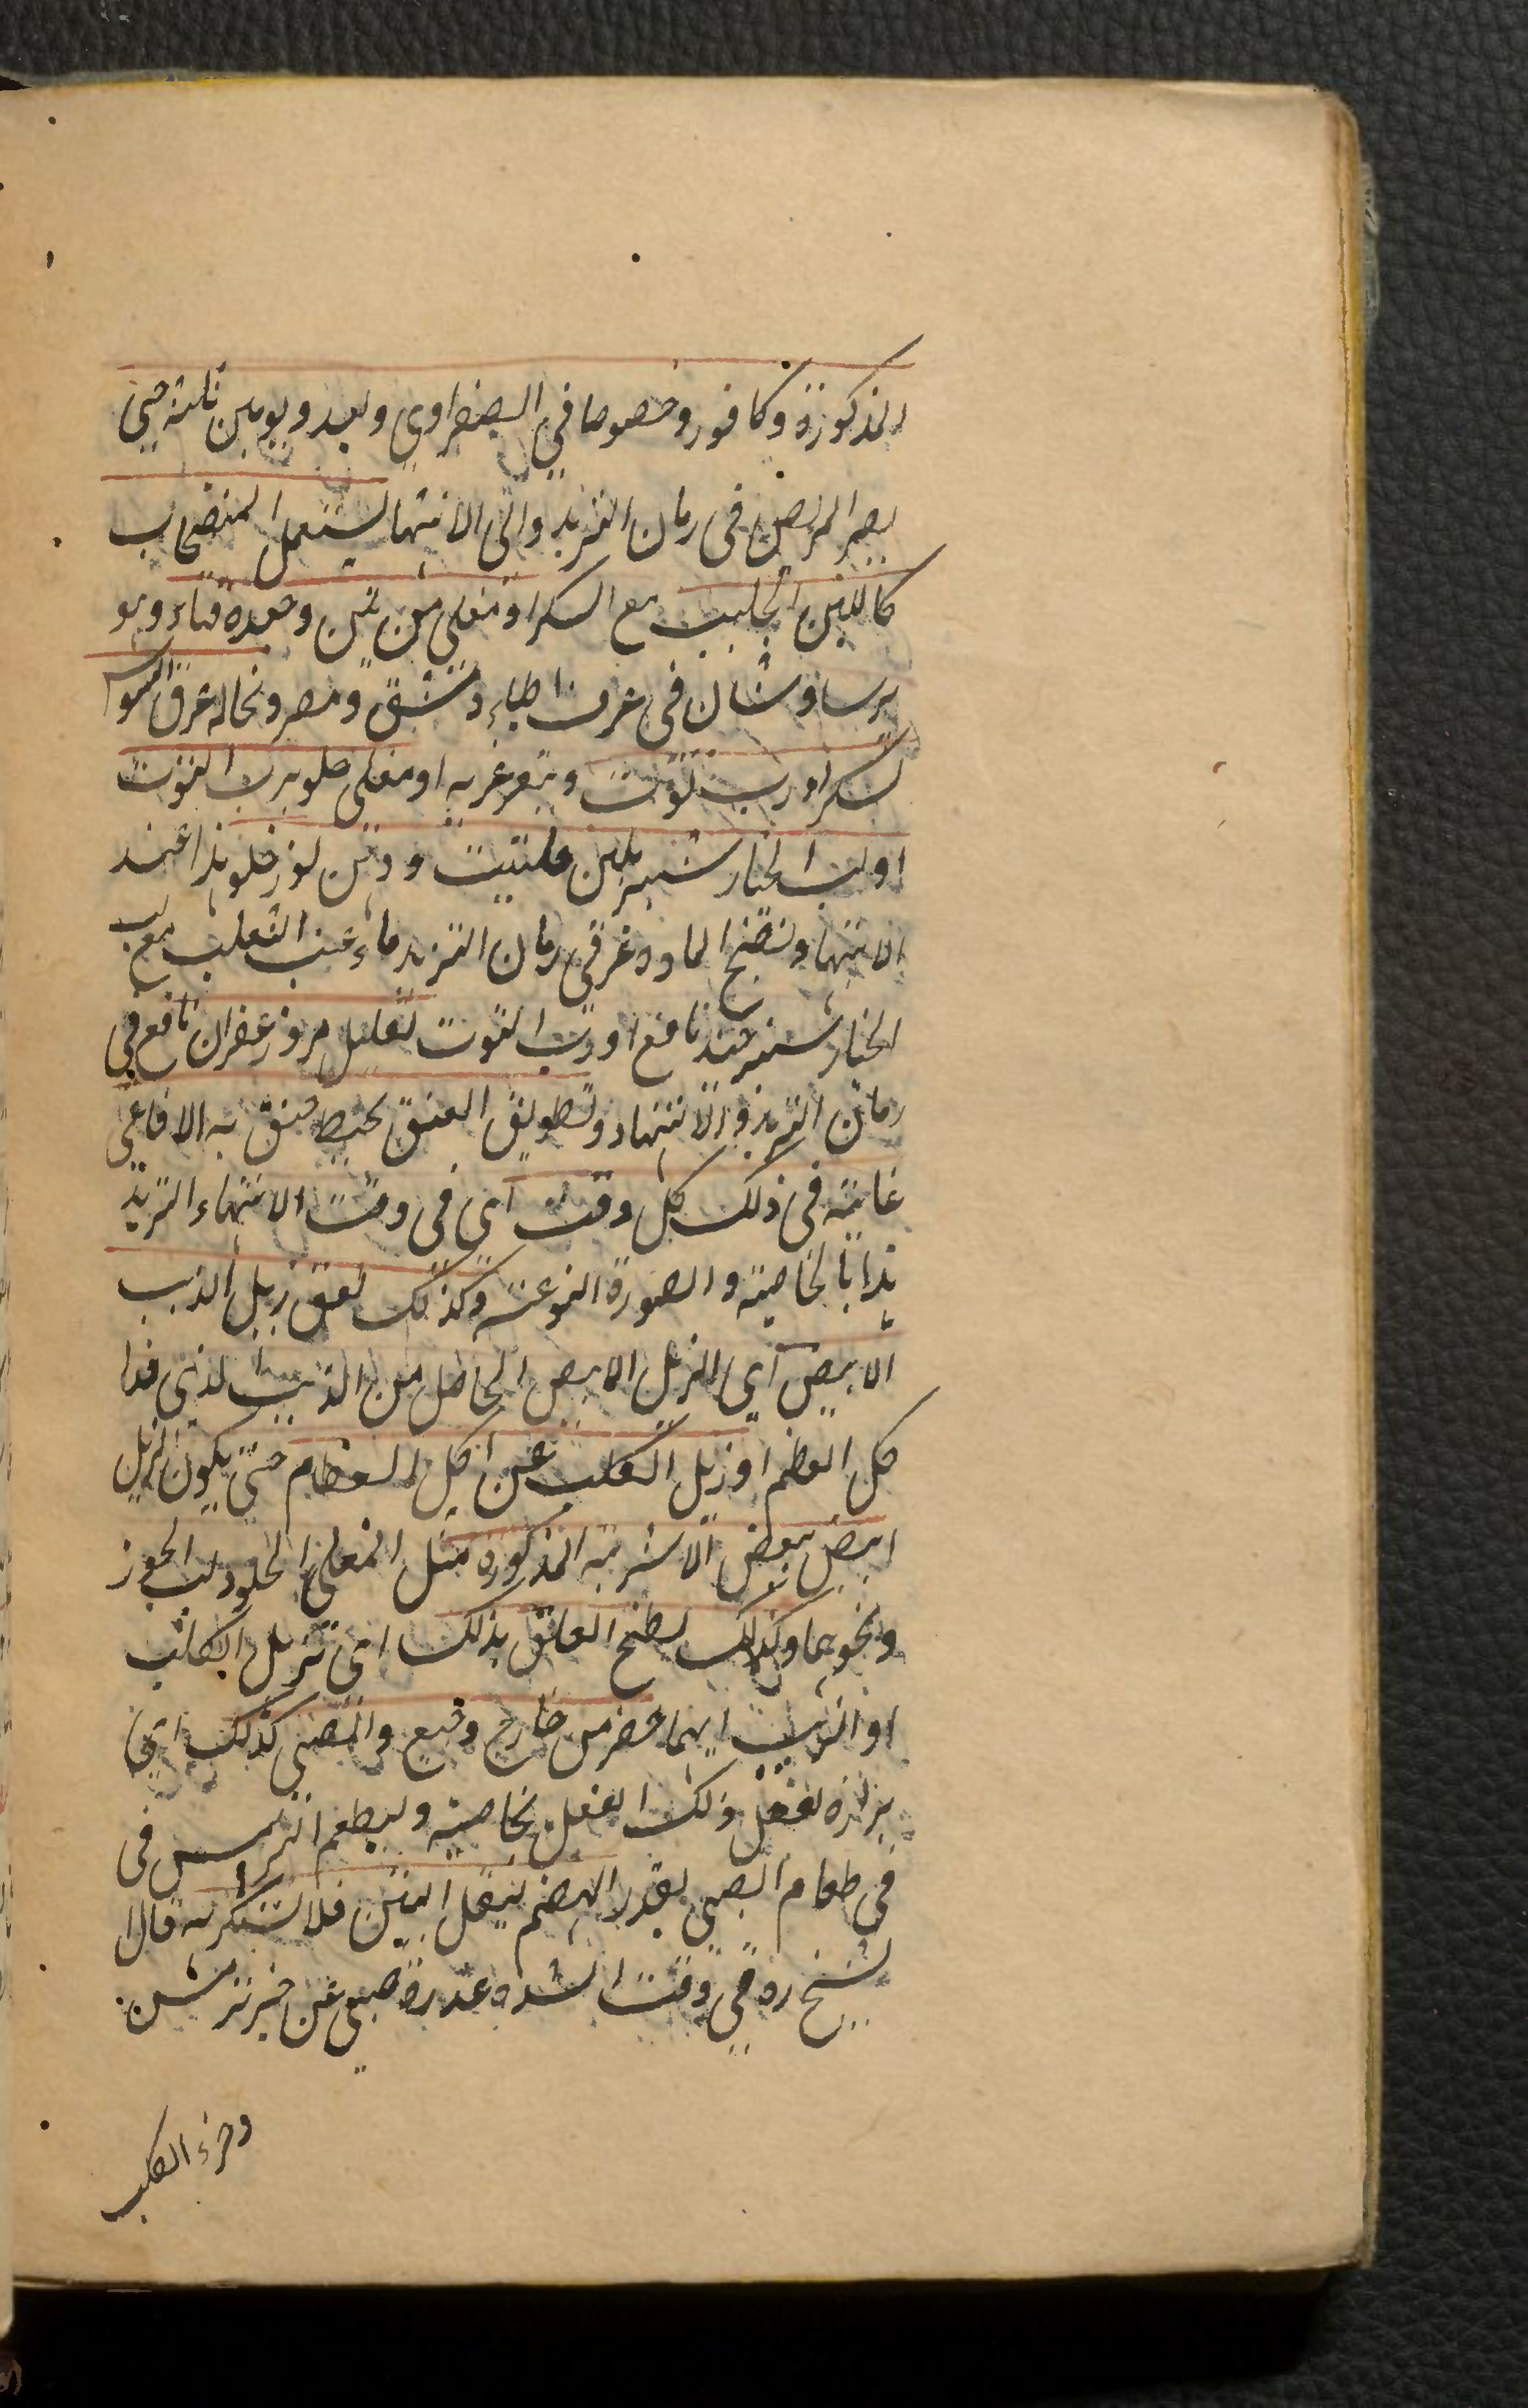 المذكورة وكافور وخصوصا في الصفراوي وبعد يومين ثلثة حتى
يصير المرض في زمان التزيد والى الانتها يستعمل المنضجات
كاللبن الحليب مع السكر او مغلى من تين وحده قتاء وهو
برساوشان في عرف اطباء دمشق ومصر ونخالة عرق السوس
بسكر او رب توت ويتغرغر به او مغلى حلو برب التوت
او لب الخيارشنبر بلبن حليب ودهن لوز حلو هذا عند
الانتها ونضج المادة غرفى زمان التزيد ماء عنب الثعلب مع لب
الخيارشنبر جيد نافع او رب التوت بقليل مر وزعفران نافع في
زمان التزيد والانتهاء وتطويق العنق بخيط خنق به الافاعي
غاية في ذلك كل وقت اى في وقت الانتهاء والتزيد
هذا بالخاصية والصورة النوعية وكذلك لعق زبل الذيب
الابيض اى الزبل الابيض الحاصل من الذيب الذى
كل العظم او زبل الكلب عن اكل العظام حتى يكون الزبل
ابيض ببعض الاشربة المذكورة مثل المغلى الحلو ورب الجوز
ونحوهما وكذلك لطخ الحلق بذلك اى بزبل الكلب
او الذيب ايهما حضر من خارج وقيع والصبي كذلك اى
برازه يفعل ذلك الفعل بخاصية وليطعم الترمس في
في طعام الصبي بقدر الهضم ليقل النتن فلا يستكره قال ا
لشيخ ره في وقت الشدة عذرة صبي عن خبز ترمس
وخرء الكلب